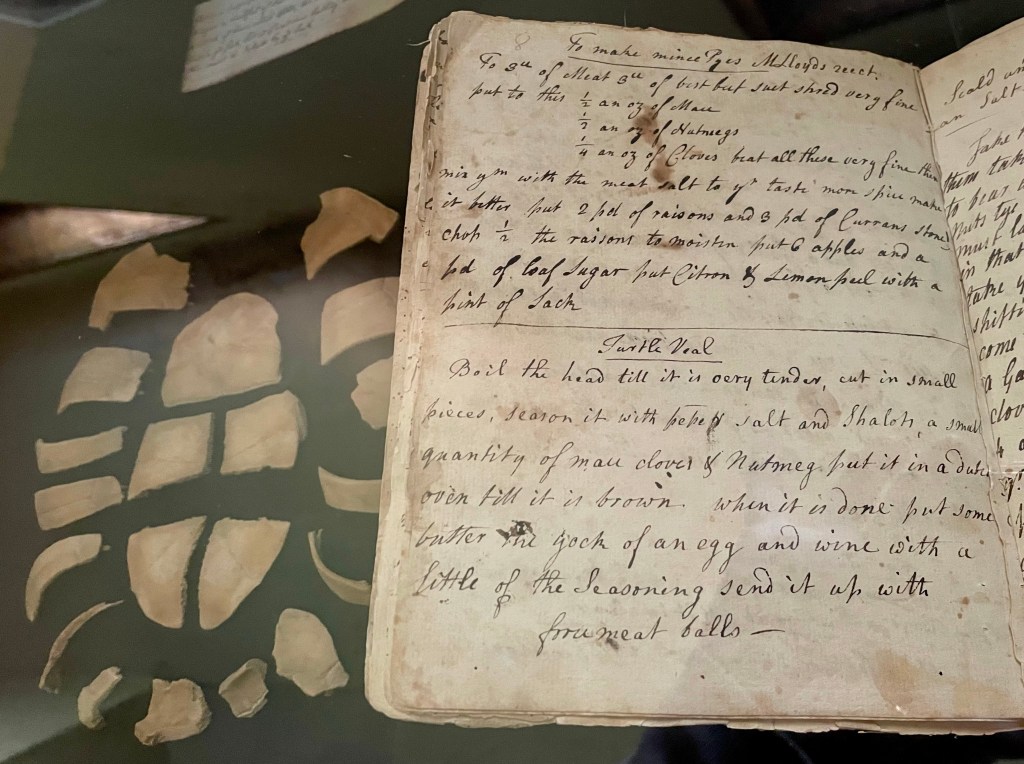 8
To make mince Pyes M Lloyds rect.
To 3ll of Meat 3ll of best beef suet shred very fine
put to this ½ an oz of Mace
½ an oz of Nutmegs
¼ an oz of Cloves beat all these very fine then
mix ym with the meat salt to yr taste more spice make
it better put 2 pd of raisons and 3 pd of Currans stone
chop ½ the raisons to moisten put 6 apples and a
pd of loaf Sugar put Citron & Lemon peel with a
pint of Sack
Turtle Veal
Boil the head till it is very tender, cut in small
pieces, season it with peper salt and Shalots, a small
quantity of mace cloves & Nutmeg put it in a dutch
oven till it is brown when it is done put some
butter the yock of an egg and wine with a
little of the Seasoning send it up with
force meat balls —
Scald
an Salt
Take
them take
to bear
Nuts
must
in that
take
shift
come
a Ga
clov
4